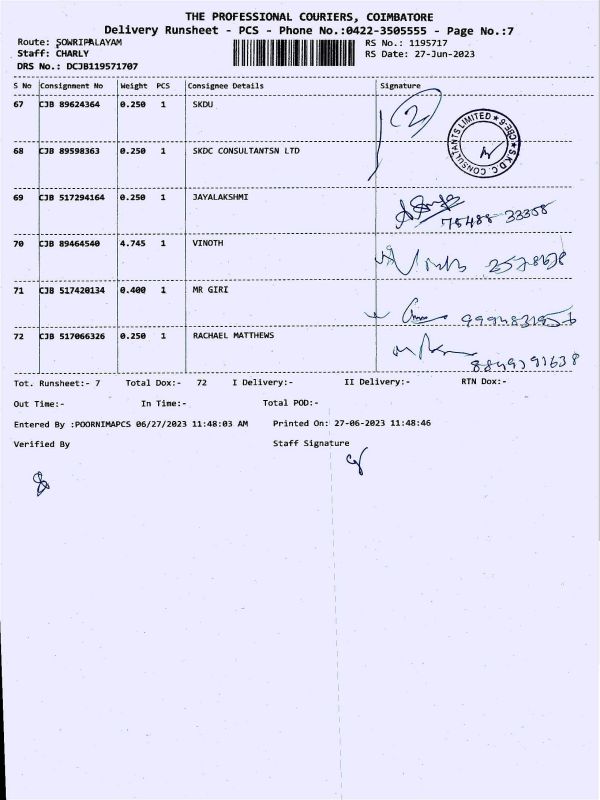 THE PROFESSIONAL COURIERS, COIMBATORE
Delivery Runsheet - PCS - Phone No.:0422-3505555 - Page No.:7
Route: SOWRIPALAYAM RS No.: 1195717
Staff: CHARLY RS Date: 27-Jun-2023
DRS No.: DCJB119571707
S No Consignment No Weight PCS Consignee Details Signature
67 CJB 89624364 0.250 1 SKDU 2
68 CJB 89598363 0.250 1 SKDC CONSULTANTSN LTD
S.K.D.C. CONSULTANTS LIMITED ★ CBE-6 ★
69 CJB 517294164 0.250 1 JAYALAKSHMI
75488 33358
70 CJB 89464540 4.745 1 VINOTH
71 CJB 517420134 0.400 1 MR GIRI
72 CJB 517066326 0.250 1 RACHAEL MATTHEWS
Tot. Runsheet:- 7 Total Dox:- 72 I Delivery:- II Delivery:- RTN Dox:-
Out Time:- In Time:- Total POD:-
Entered By :POORNIMAPCS 06/27/2023 11:48:03 AM Printed On: 27-06-2023 11:48:46
Verified By Staff Signature